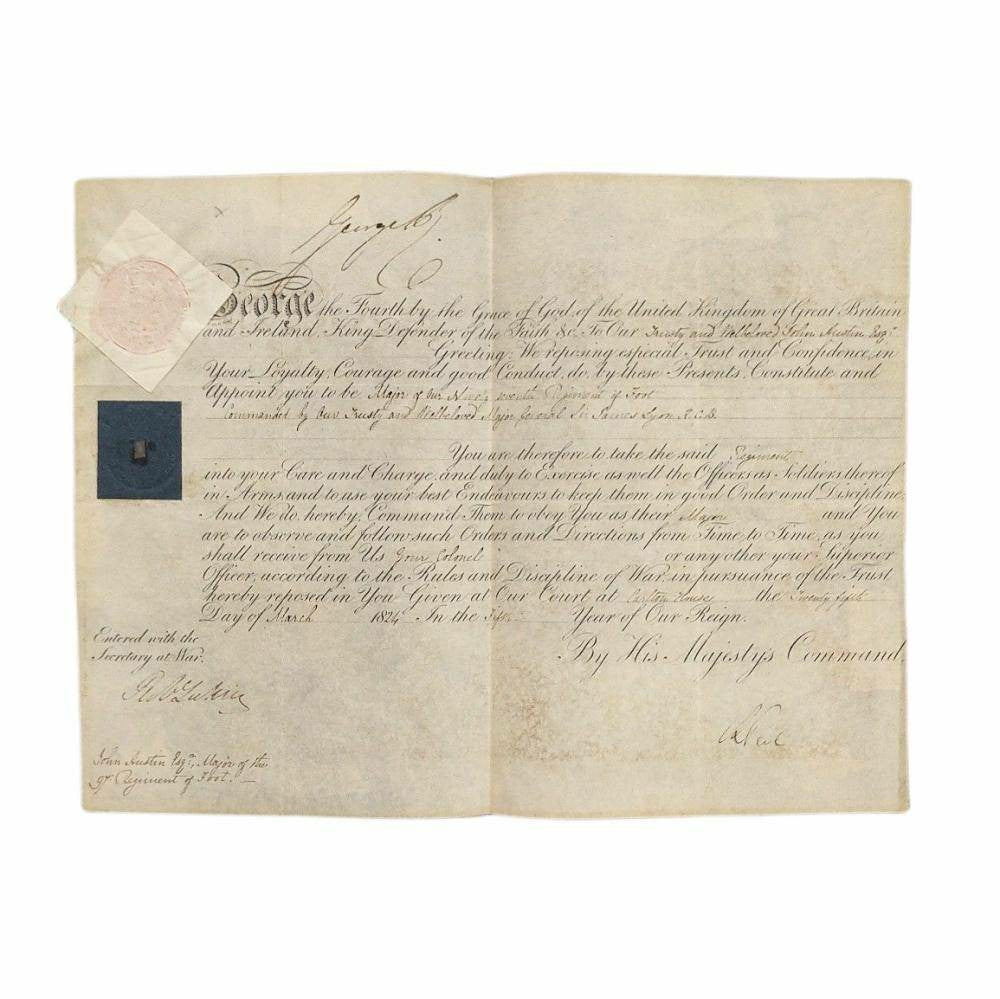 George R.
George the Fourth by the Grace of God, of the United Kingdom of Great Britain
and Ireland, King, Defender of the Faith &c. To Our Trusty and Welbeloved John Austin Esqr.
Greeting: We reposing especial Trust and Confidence in
Your Loyalty, Courage, and good Conduct, do, by these Presents, Constitute and
Appoint you to be Major of Our Ninety seventh Regiment of Foot
Commanded by Our Trusty and Welbeloved Major General Sir James Lyon K.C.B.
You are therefore to take the said Regiment
into your Care and Charge, and duly to Exercise as well the Officers as Soldiers thereof
in Arms, and to use your best Endeavours to keep them in good Order and Discipline;
And We do hereby Command Them to obey You as their Major and You
are to observe and follow such Orders and Directions from Time to Time, as you
shall receive from Us, Your Colonel or any other your Superior
Officer, according to the Rules and Discipline of War, in pursuance of the Trust
hereby reposed in You. Given at Our Court, at Carlton House the Twenty fifth
Day of March 1824 In the Fifth Year of Our Reign.
Entered with the
Secretary at War.
By His Majesty's Command,
John Austin Esqr., Major of the
97 Regiment of Foot.